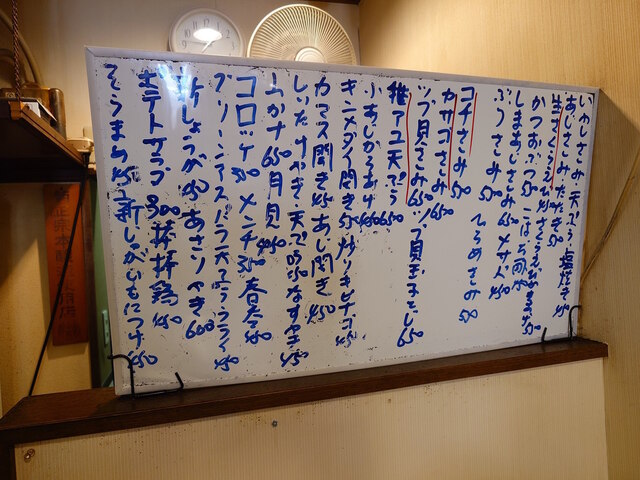 いわしさしみ 天ぷら 塩焼き 450
あじさしみ たたき 550
生ざくえび
かつおぶつ 550 こはだ
しまあじさしみ 650 メサバ 450
ぶりさしみ 550 ひらめさしみ 550
コチさしみ 550
カサゴさしみ 650
ツブ貝さしみ 650 ツブ貝玉子とじ 650
稚アユ天ぷら 650
小あじからあげ 450
キンメダイ開き 550 炒りギンナン 450
カマス開き 450 あじ開き 450
しいたけやき 天ぷら 450 なすやき 450
上かす 650 月見 450
コロッケ 500 メンチ 500 春巻 450
グリーンアスパラ天ぷら フライ 450
新しょうが 450 あさりやき 600
ポテトサラダ 300 棒棒鶏 450
そうまめ 450 新じゃがいもにつけ 450